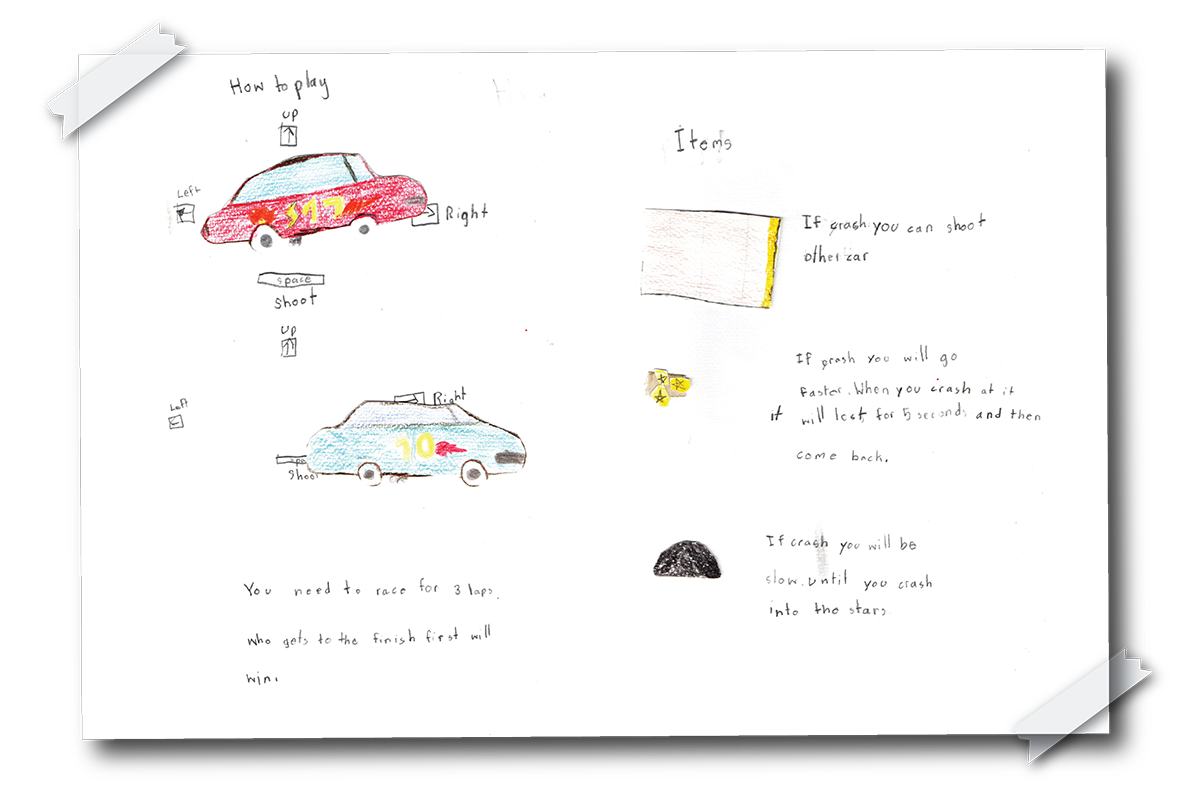 How to play
UP
Left
Right
space
shoot
UP
Left
Right
10
You need to race for 3 laps.
who gets to the finish first will
win.
Items
If crash you can shoot
other car
If crash you will go
Faster. When you crash at it
it will last for 5 seconds and then
come back.
If crash you will be
slow. until you crash
into the stars